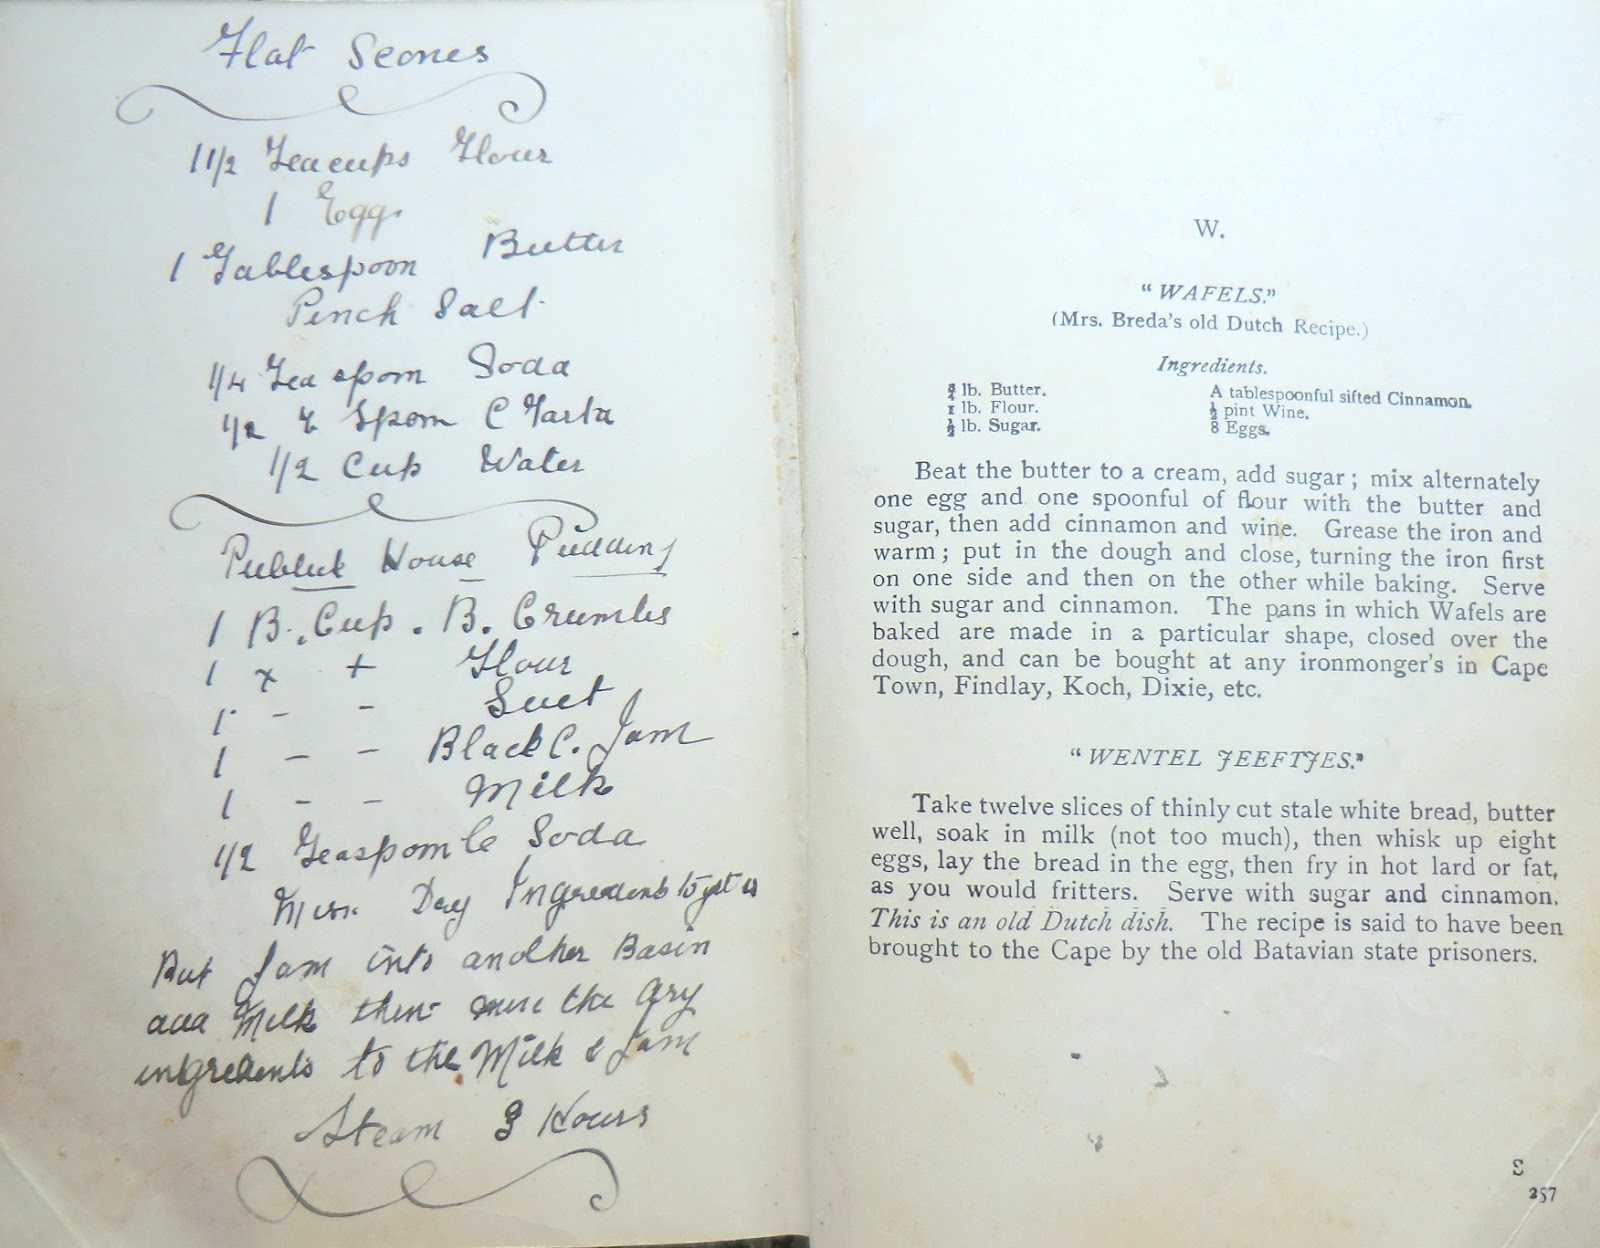 Flat Scones
1 1/2 Teacups Flour
1 Egg
1 Tablespoon Butter
Pinch Salt
1/4 Teaspoon Soda
1/2 T Spoon C Tarta
1/2 Cup Water
House Pudding
1 B. Cup. B. Crumbs
1 x + Flour
1 - - Suet
1 - - Black C. Jam
1 - - Milk
1/2 Teaspoonle Soda
Dry Ingredients
Put Jam into another Basin
Milk then the dry
ingredients to the Milk & Jam
Steam 3 Hours
W.
"WAFELS."
(Mrs. Breda's old Dutch Recipe.)
Ingredients.
lb. Butter.
1 lb. Flour.
½ lb. Sugar.
A tablespoonful sifted Cinnamon.
½ pint Wine.
8 Eggs.
Beat the butter to a cream, add sugar; mix alternately
one egg and one spoonful of flour with the butter and
sugar, then add cinnamon and wine. Grease the iron and
warm; put in the dough and close, turning the iron first
on one side and then on the other while baking. Serve
with sugar and cinnamon. The pans in which Wafels are
baked are made in a particular shape, closed over the
dough, and can be bought at any ironmonger's in Cape
Town, Findlay, Koch, Dixie, etc.
"WENTEL JEEFTJES."
Take twelve slices of thinly cut stale white bread, butter
well, soak in milk (not too much), then whisk up eight
eggs, lay the bread in the egg, then fry in hot lard or fat,
as you would fritters. Serve with sugar and cinnamon.
This is an old Dutch dish. The recipe is said to have been
brought to the Cape by the old Batavian state prisoners.
S
257